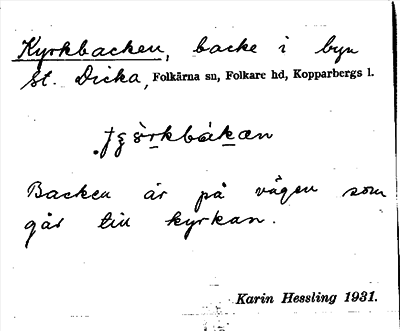 Kyrkbacken, backe i byn
St. Dicka, Folkärna sn, Folkare hd, Kopparbergs l.
Backen är på vägen som
går till kyrkan.
Karin Hessling 1931.